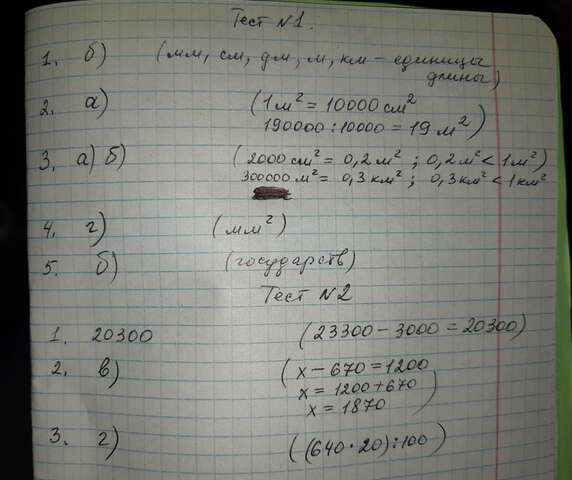 Тест N1.
1. б) (мм, см, дм, м, км – единицы
длины)
2. а) (1 м² = 10000 см²
190000 : 10000 = 19 м²)
3. а) б) (2000 см² = 0,2 м² ; 0,2 м² < 1 м²)
300000 м² = 0,3 км² ; 0,3 км² < 1 км²
4. г) (мм²)
5. б) (государств)
Тест N2
1. 20300 (23300 – 3000 = 20300)
2. в) (х – 670 = 1200
х = 1200 + 670
х = 1870)
3. г) ((640 · 20) : 100)